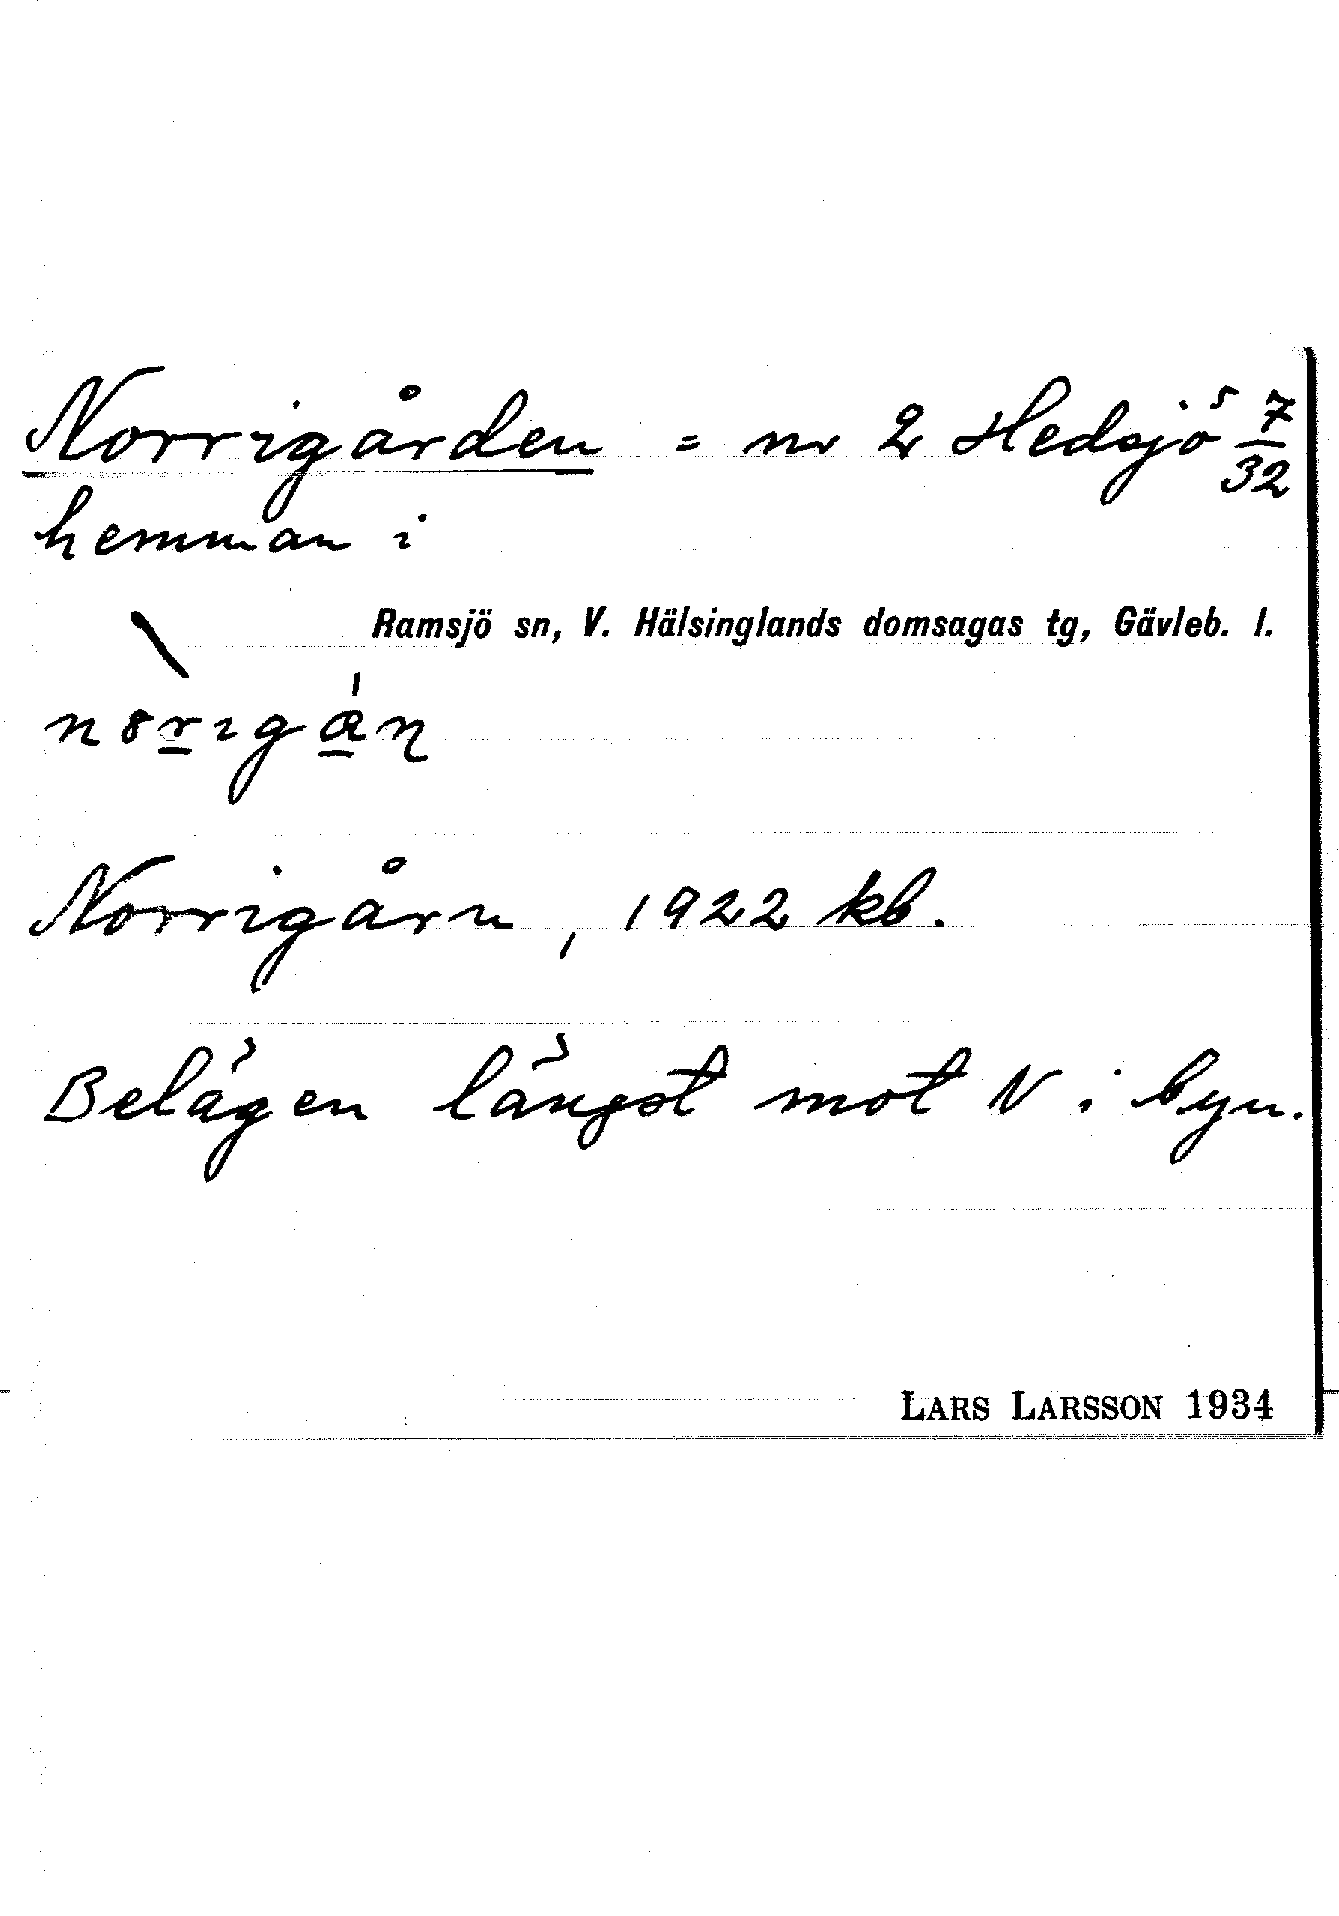 Norrigården = nr 2 Hedsjö 7/32
hemman i
Ramsjö sn, V. Hälsinglands domsagas tg, Gävleb. l.
Norrigårn, 1922 kb.
Belägen längst mot N i byn.
LARS LARSSON 1934